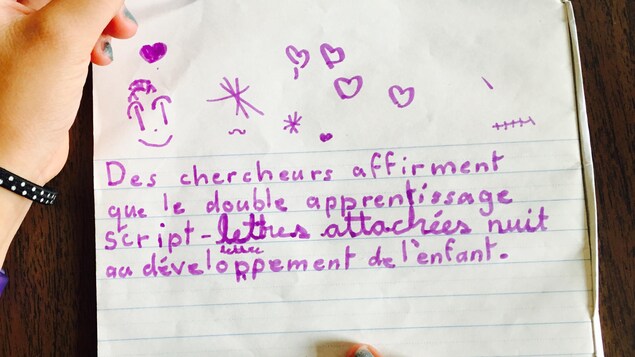 Des chercheurs affirment
que le double apprentissage
script-lettres attachées nuit
lettres
au développement de l'enfant.